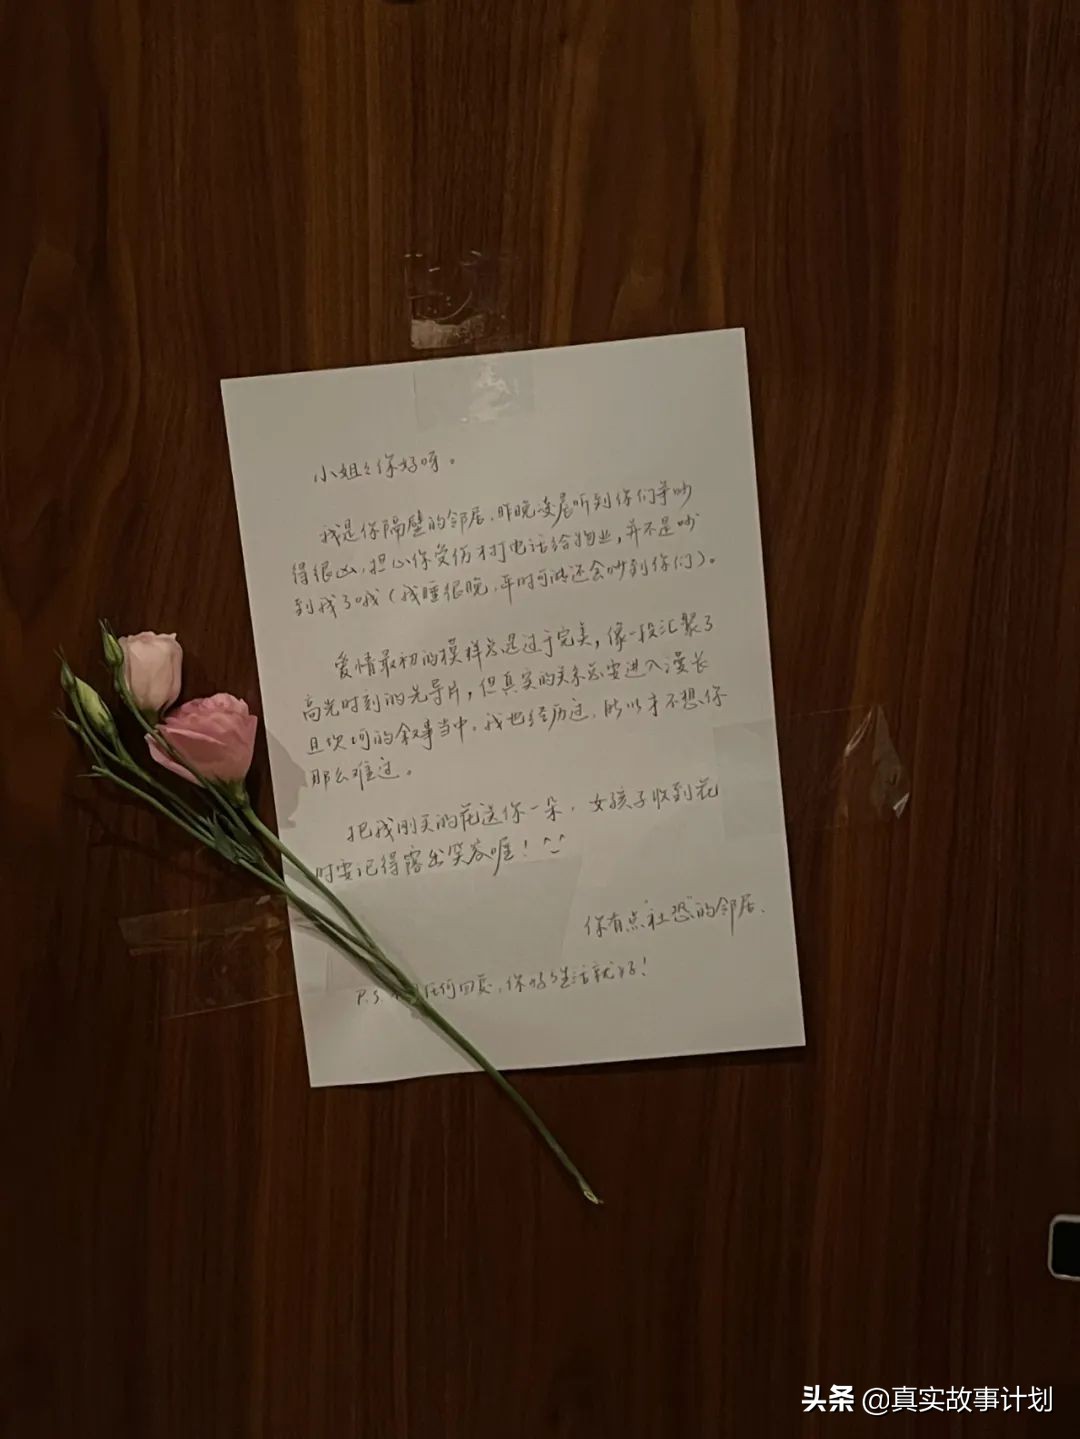 小姐々你好呀。
我是你隔壁的邻居，昨晚凌晨听到你们争吵
得很凶，担心你受伤才打电话给物业，并不是吵
到我了哦（我睡很晚，平时可能还会吵到你们）。
爱情最初的模样总是过于完美，像一段汇聚了
高光时刻的先导片，但真实的关系总要进入漫长
且坎坷的叙事当中。我也经历过，所以才不想你
那么难过。
把我刚买的花送你一朵，女孩子收到花
时要记得露出笑容喔！^^
你有点"社恐"的邻居.
P.S. 任何回复，你好好生活就好！
头条 @真实故事计划